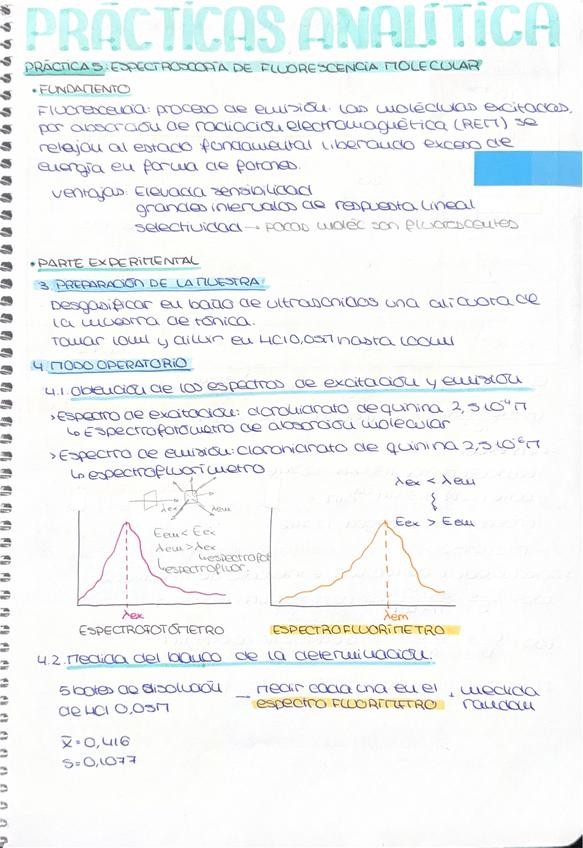 PRÁCTICAS ANALÍTICA
PRÁCTICA 5: ESPECTROSCOPÍA DE FLUORESCENCIA MOLECULAR
• FUNDAMENTO
Fluorescencia: proceso de emisión. Las moléculas excitadas,
por absorción de radiación electromagnética (REM) se
relajan al estado fundamental liberando exceso de
energía en forma de fotones.
ventajas: Elevada sensibilidad
grandes intervalos de respuesta lineal
selectividad → pocas moléc son fluorescentes
• PARTE EXPERIMENTAL
3. PREPARACIÓN DE LA MUESTRA:
Desgasificar en baño de ultrasonidos una alícuota de
la muestra de tónica.
Tomar 10ml y diluir en HCl 0,05M hasta 100ml
4. MODO OPERATORIO
4.1. Obtención de los espectros de excitación y emisión
> Espectro de excitación: clorohidrato de quinina 2,5·10⁻⁴M
↳ Espectrofotómetro de absorción molecular
> Espectro de emisión: clorohidrato de quinina 2,5·10⁻⁶M
↳ espectrofluorímetro
λex λem
λex < λem
Eex > Eem
Eem < Eex
λem > λex
↳ espectrofot
↳ espectrofluor.
λex
λem
ESPECTROFOTÓMETRO
ESPECTROFLUORÍMETRO
4.2. Medida del blanco de la determinación.
5 botes de disolución — medir cada una en el • medida
de HCl 0,05M espectroFLUORÍMETRO random
x̄ = 0,416
s = 0,1077